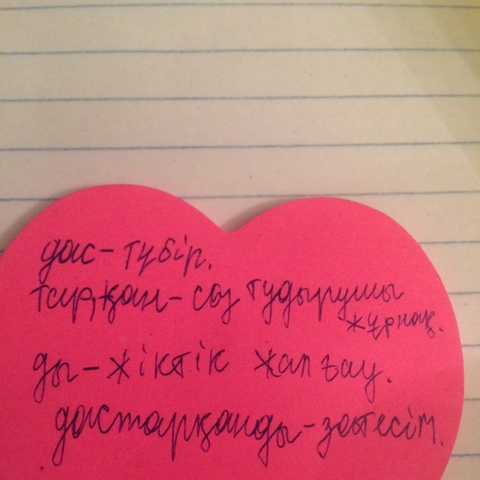 дас-түбір.
тар,қан-сөз тудырушы
жұрнақ.
ды-жіктік жалғау.
дастарқанды-зат есім.